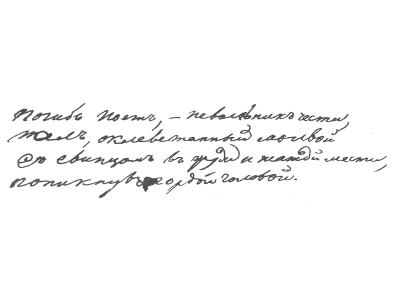 Погибъ поэтъ, – невольникъ чести,
Палъ, оклеветанный молвой
Съ свинцомъ въ груди и жаждой мести,
Поникнувъ гордой головой.